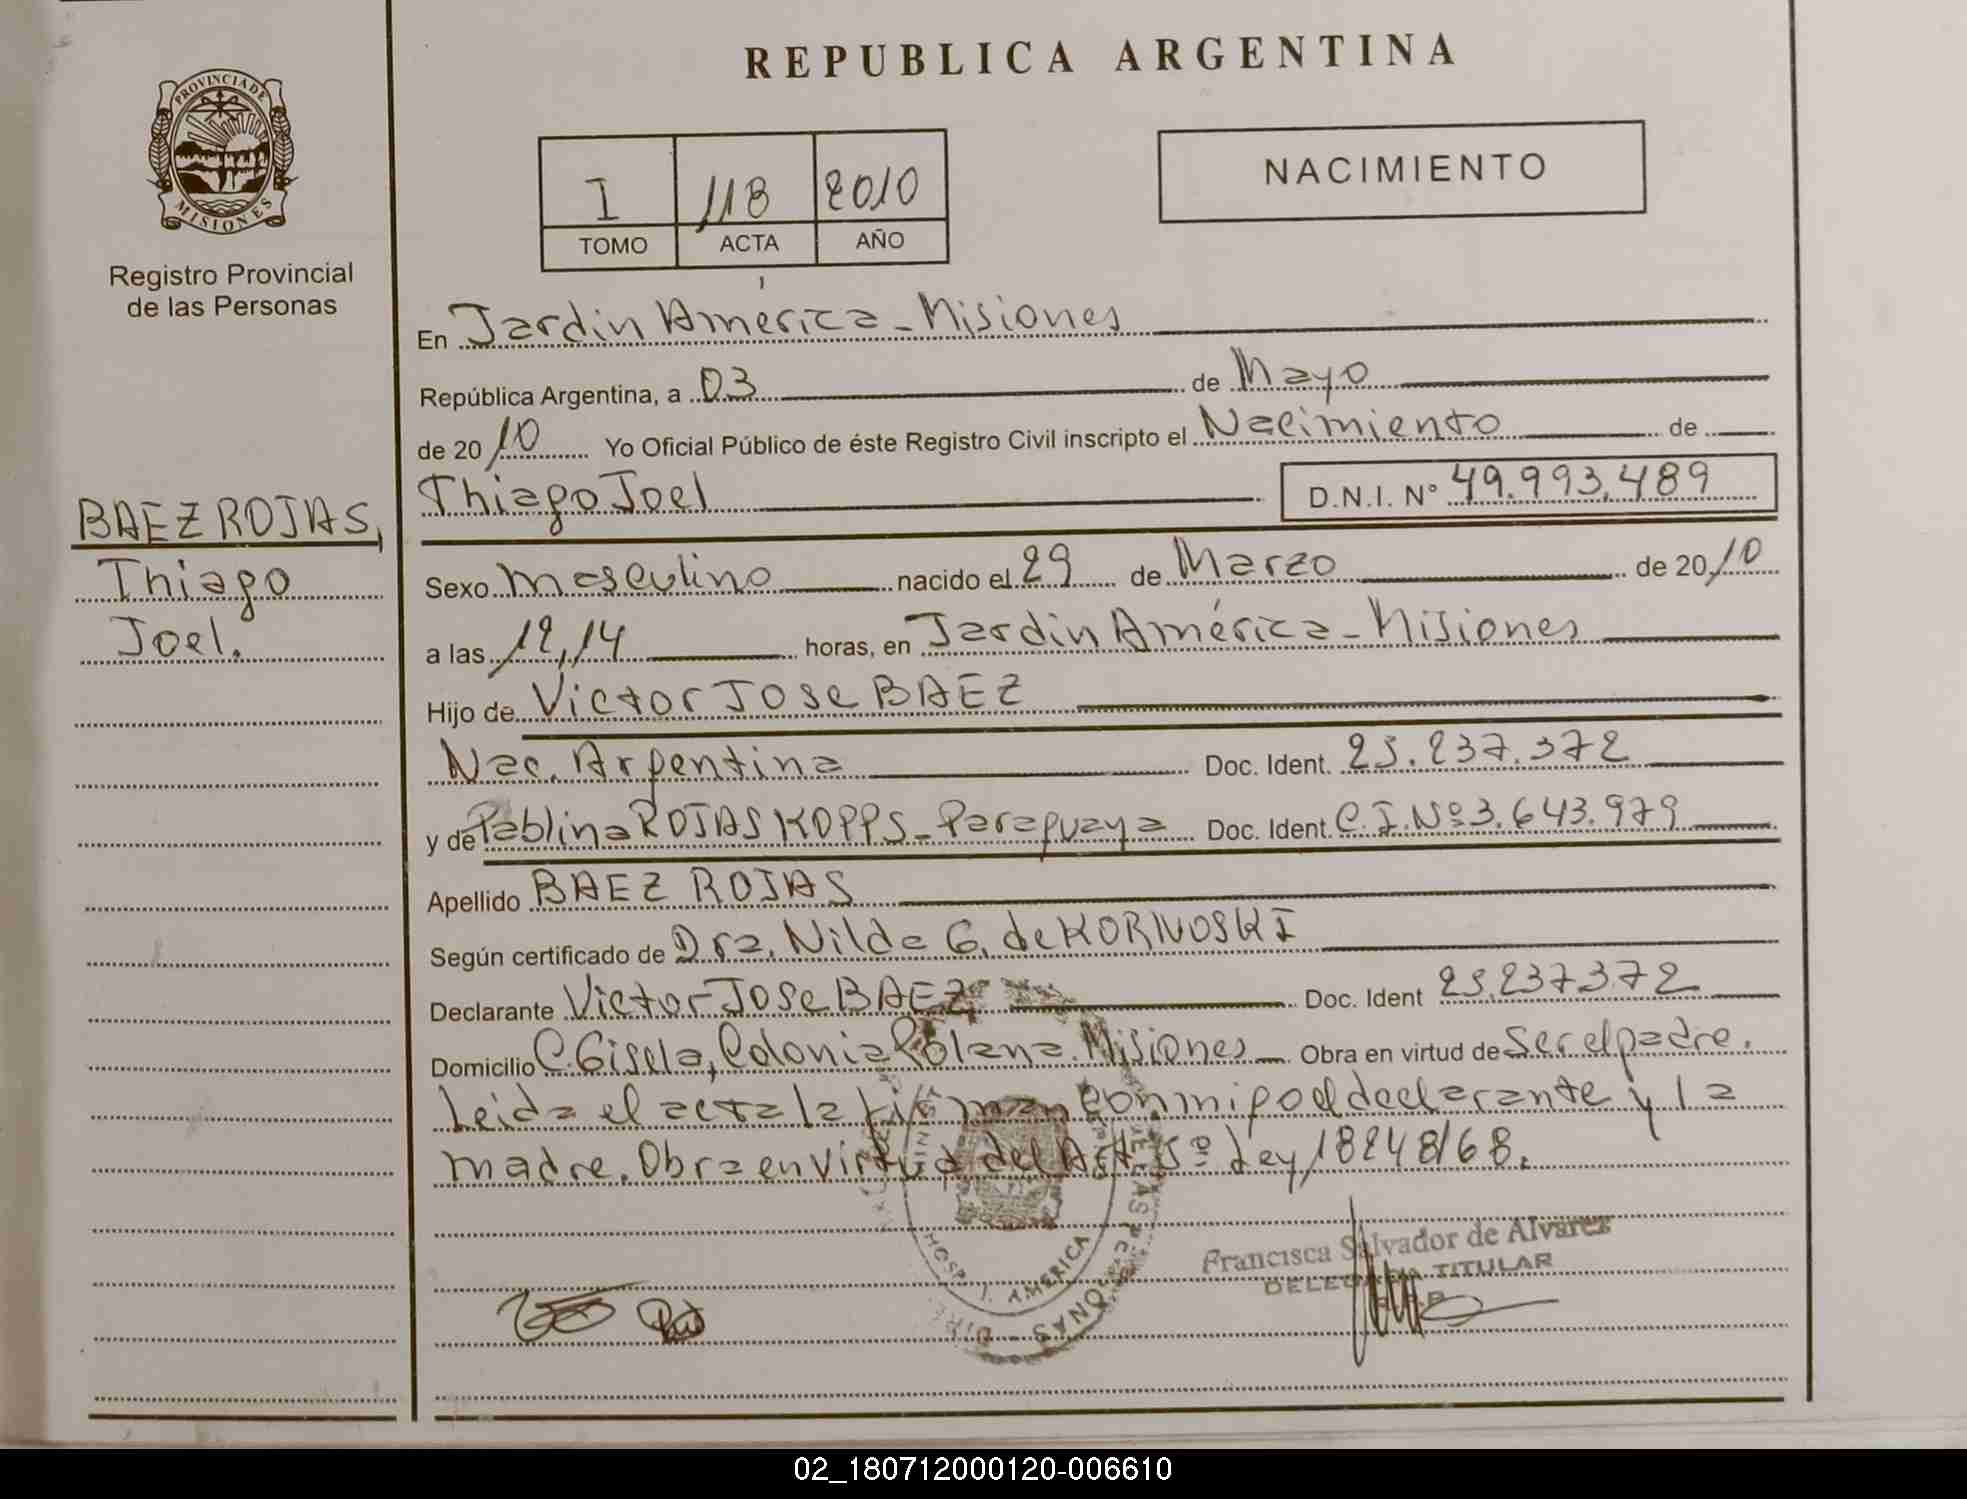 REPUBLICA ARGENTINA
PROVINCIA DE MISIONES
Registro Provincial
de las Personas
I 118 2010
TOMO ACTA AÑO
NACIMIENTO
BAEZ ROJAS,
Thiago
Joel.
En Jardin América - Misiones
República Argentina, a 03 de Mayo
de 2010 Yo Oficial Público de éste Registro Civil inscripto el Nacimiento de
Thiago Joel D.N.I. N° 49.993.489
Sexo Masculino nacido el 29 de Marzo de 2010
a las 12,14 horas, en Jardin América - Misiones
Hijo de Victor Jose BAEZ
Nac. Argentina Doc. Ident. 25.237.372
y de Pablina ROJAS KOPPS - Paraguaya Doc. Ident. C.I. Nº 3.643.979
Apellido BAEZ ROJAS
Según certificado de Dra. Nilda G. de KORNOSKI
Declarante Victor Jose BAEZ Doc. Ident 25.237372
Domicilio C. Gisela, Colonia Polana. Misiones Obra en virtud de Ser el padre.
Leida el acta la firman conmigo el declarante y la
madre. Obra en virtud del Art. 5º Ley 18248/68.
Francisca Salvador de Alvarez
DELEGADA TITULAR
HOSP. J. AMERICA
02_180712000120-006610